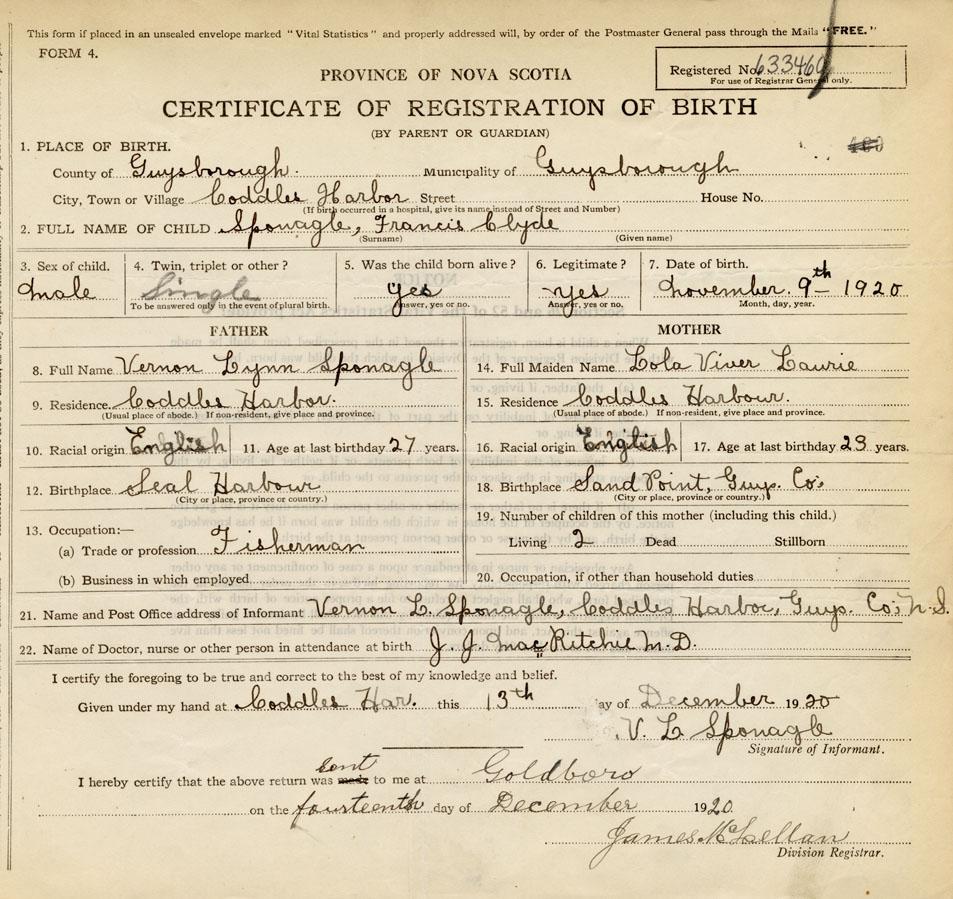 This form if placed in an unsealed envelope marked "Vital Statistics" and properly addressed will, by order of the Postmaster General pass through the Mails "FREE."
FORM 4.
Registered No. 633460
For use of Registrar General only.
PROVINCE OF NOVA SCOTIA
CERTIFICATE OF REGISTRATION OF BIRTH
(BY PARENT OR GUARDIAN)
1. PLACE OF BIRTH.
County of Guysborough. Municipality of Guysborough
City, Town or Village Coddles Harbor Street House No.
(If birth occurred in a hospital, give its name instead of Street and Number)
2. FULL NAME OF CHILD Sponagle, Francis Clyde
(Surname) (Given name)
3. Sex of child. 4. Twin, triplet or other? 5. Was the child born alive? 6. Legitimate? 7. Date of birth.
male Single yes yes November. 9th 1920
To be answered only in the event of plural birth. Answer, yes or no. Answer, yes or no. Month, day, year.
FATHER
8. Full Name Vernon Lynn Sponagle
9. Residence. Coddles Harbor.
(Usual place of abode.) If non-resident, give place and province.
10. Racial origin English 11. Age at last birthday 27 years.
12. Birthplace Seal Harbour
(City or place, province or country.)
13. Occupation:—
(a) Trade or profession Fisherman
(b) Business in which employed
MOTHER
14. Full Maiden Name Lola Viver Laurie
15. Residence. Coddles Harbour.
(Usual place of abode.) If non-resident, give place and province.
16. Racial origin English 17. Age at last birthday 23 years.
18. Birthplace Sand Point, Guys. Co.
(City or place, province or country.)
19. Number of children of this mother (including this child.)
Living 2 Dead Stillborn
20. Occupation, if other than household duties
21. Name and Post Office address of Informant Vernon L. Sponagle, Coddles Harbor, Guys. Co; N.S.
22. Name of Doctor, nurse or other person in attendance at birth J. J. MacRitchie M.D.
I certify the foregoing to be true and correct to the best of my knowledge and belief.
Given under my hand at Coddles Har. this 13th day of December 1920
V. L Sponagle
Signature of Informant.
sent
I hereby certify that the above return was made to me at Goldboro
on the fourteenth day of December 1920
James McLellan
Division Registrar.